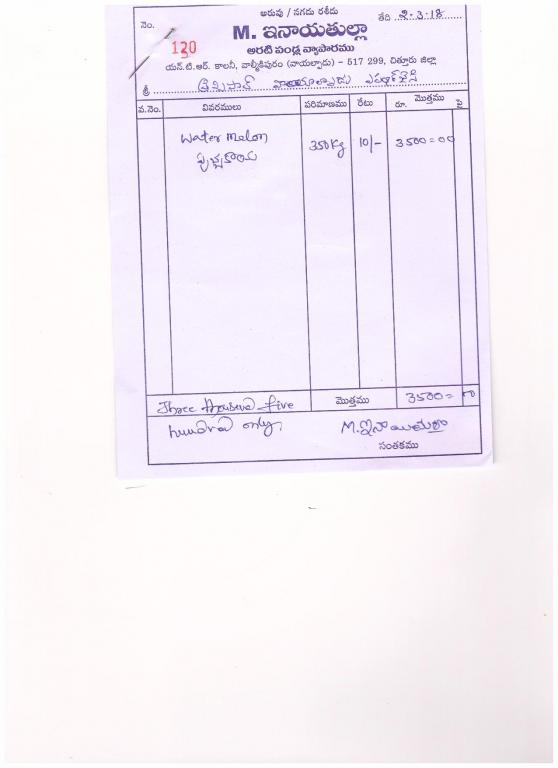 అరువు / నగదు రశీదు
నెం. 130 తేది 2-3-18
M. ఇనాయతుల్లా
అరటి పండ్ల వ్యాపారము
యన్.టి.ఆర్. కాలనీ, వాల్మీకిపురం (వాయల్పాడు) – 517 299, చిత్తూరు జిల్లా
శ్రీ
వ.నెం. వివరములు పరిమాణము రేటు మొత్తము
రూ. పై
Water melon 350Kg 10/- 3500=00
పుచ్చకాయ
Three thousand five మొత్తము 3500=00
hundred only, M. ఇనాయతుల్లా
సంతకము